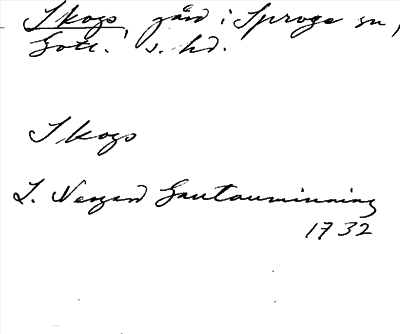 Skogs, gård i Sproge sn,
Gotl. s. hd.
Skogs
L. Nergård Gautauminning
1732